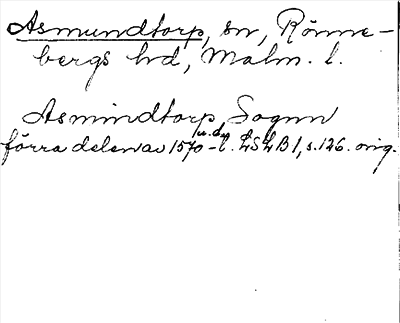 Asmundtorp, sn, Rönne-
bergs hd, Malm. l.
Asmindtorp Sognn
u. dy
förra delen av 1570-t. LSLB 1, s. 126. orig.